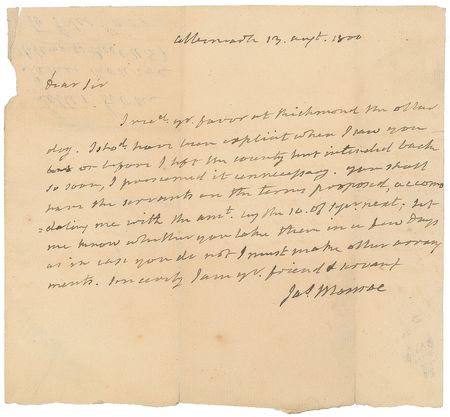 Albemarle 13. augt. 1800
Dear Sir
I recd. yr. favor at Richmond the other
day. I shod. have been explicit when I saw you
or before I left the county but intended back
so soon, I presumed it unnecessary. You shall
have the servants on the terms proposed, accomo
=dating me with the amt. by the 10. of Sepr next, let
me know whether you take them in a few days
as in case you do not I must make other arrang
ments. sincerely I am yr. friend & servant
Jas. Monroe